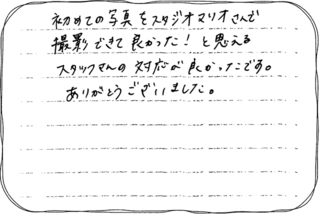 初めての写真をスタジオマリオさんで
撮影できて良かった！と思える
スタッフさんの対応が良かったです。
ありがとうございました。